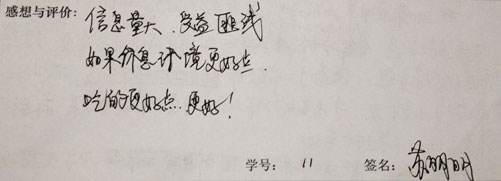 感想与评价: 信息量大、受益匪浅
如果休息环境更好点.
吃的更好点.更好!
学号: 11 签名: 苏明明